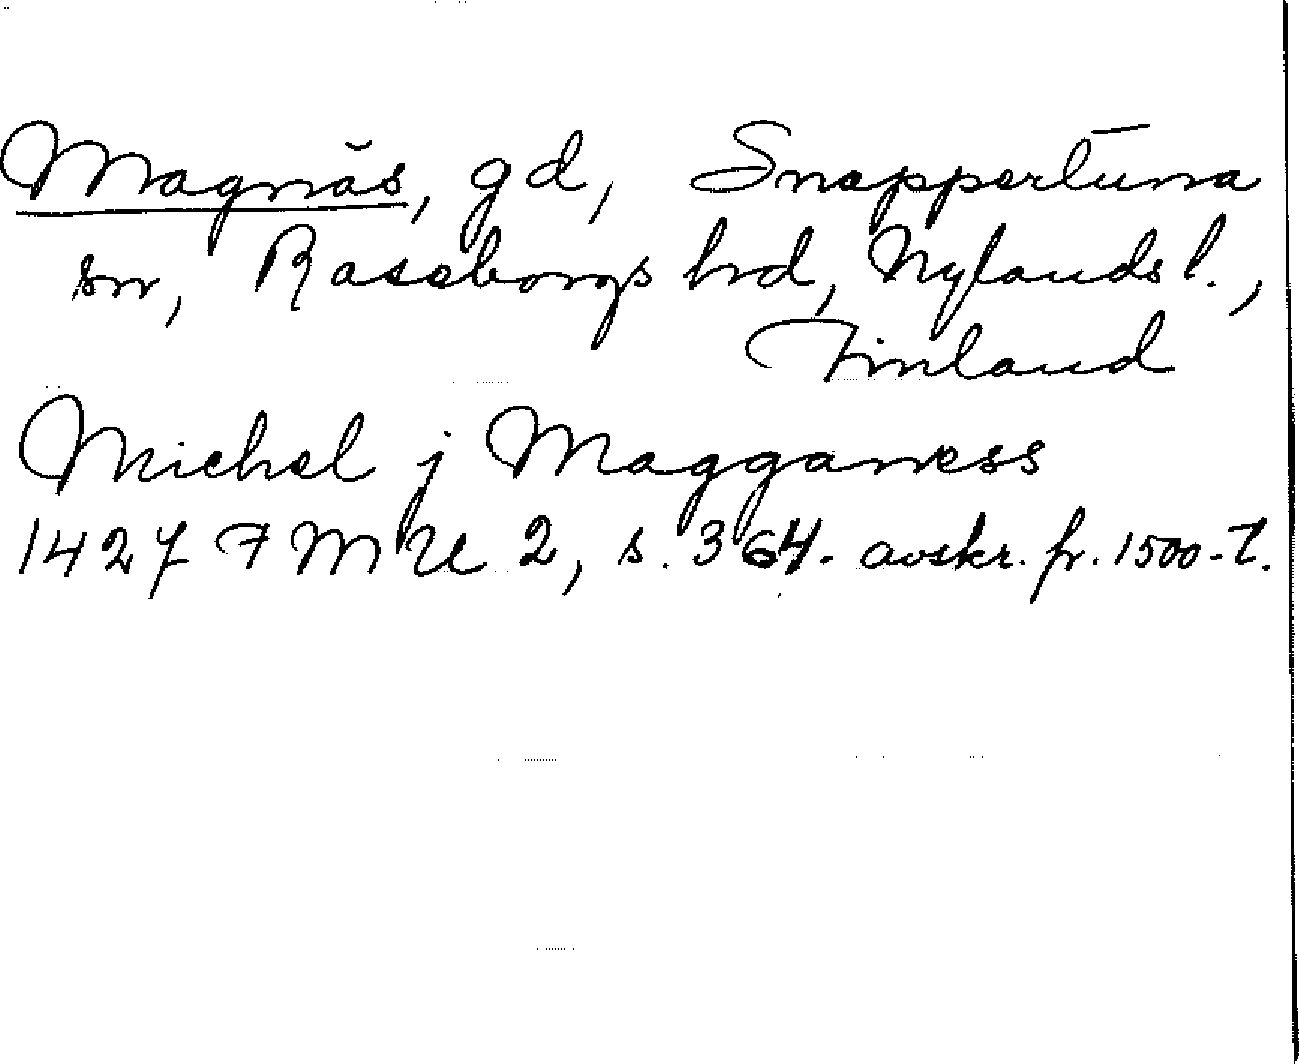 Magnäs, gd, Snappertuna
sn, Raseborgs hrd, Nylands l.,
Finland
Michel j Magganess
1427 FMU 2, s. 364. avskr. fr. 1500-t.